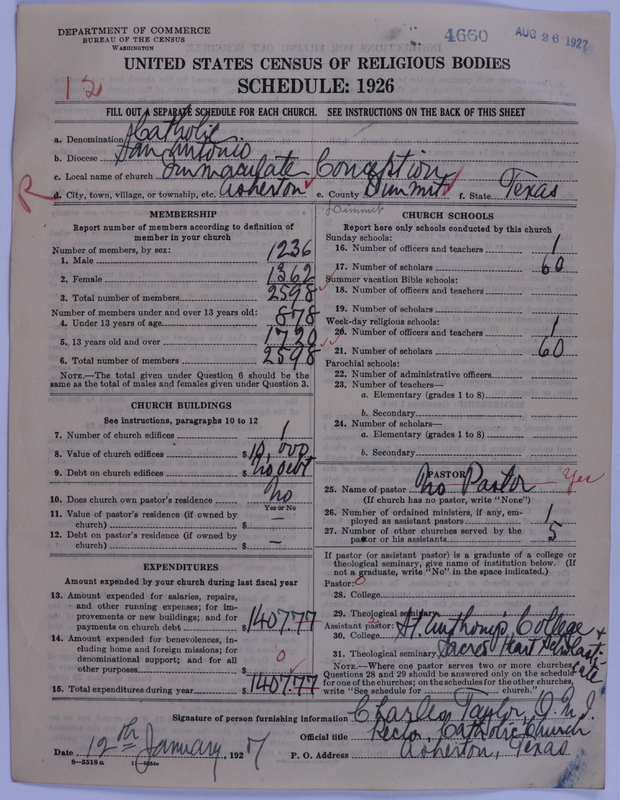 DEPARTMENT OF COMMERCE
BUREAU OF THE CENSUS
WASHINGTON
4660
AUG 26 1927
12
UNITED STATES CENSUS OF RELIGIOUS BODIES
SCHEDULE: 1926
FILL OUT A SEPARATE SCHEDULE FOR EACH CHURCH. SEE INSTRUCTIONS ON THE BACK OF THIS SHEET
a. Denomination Catholic
b. Diocese San Antonio
c. Local name of church Immaculate Conception
R
d. City, town, village, or township, etc. Asherton e. County Dimmit f. State Texas
Dimmit
MEMBERSHIP
Report number of members according to definition of
member in your church
Number of members, by sex:
1. Male 1236
2. Female 1362
3. Total number of members 2598
Number of members under and over 13 years old:
4. Under 13 years of age 878
5. 13 years old and over 1720
6. Total number of members 2598
NOTE.—The total given under Question 6 should be the
same as the total of males and females given under Question 3.
CHURCH BUILDINGS
See instructions, paragraphs 10 to 12
7. Number of church edifices 1
8. Value of church edifices $
9. Debt on church edifices $ no debt
10. Does church own pastor's residence no
Yes or No
11. Value of pastor's residence (if owned by
church) $ —
12. Debt on pastor's residence (if owned by
church) $ —
EXPENDITURES
Amount expended by your church during last fiscal year
13. Amount expended for salaries, repairs,
and other running expenses; for im-
provements or new buildings; and for
payments on church debt $ 1407.77
14. Amount expended for benevolences, in-
cluding home and foreign missions; for
denominational support; and for all
other purposes 0
15. Total expenditures during year $ 1407.77
CHURCH SCHOOLS
Report here only schools conducted by this church
Sunday schools:
16. Number of officers and teachers 1
17. Number of scholars 60
Summer vacation Bible schools:
18. Number of officers and teachers
19. Number of scholars
Week-day religious schools:
20. Number of officers and teachers 1
21. Number of scholars 60
Parochial schools:
22. Number of administrative officers
23. Number of teachers—
a. Elementary (grades 1 to 8)
b. Secondary
24. Number of scholars—
a. Elementary (grades 1 to 8)
b. Secondary
PASTOR
25. Name of pastor No Pastor Yes
(If church has no pastor, write "None")
26. Number of ordained ministers, if any, em-
ployed as assistant pastors 1
27. Number of other churches served by the
pastor or his assistants 5
If pastor (or assistant pastor) is a graduate of a college or
theological seminary, give name of institution below. (If
not a graduate, write "No" in the space indicated.)
Pastor: 0
28. College
29. Theological seminary
Assistant pastor:
30. College St. Anthony's College +
31. Theological seminary Sacred Heart Scholasti-
cate
NOTE.—Where one pastor serves two or more churches,
Questions 28 and 29 should be answered only on the schedule
for one of the churches; on the schedules for the other churches
write "See schedule for church."
Signature of person furnishing information Charles Taylor, O.M.I.
Official title Rector, Catholic Church
Date 12th January, 1927 P. O. Address Asherton, Texas
8—5518 a